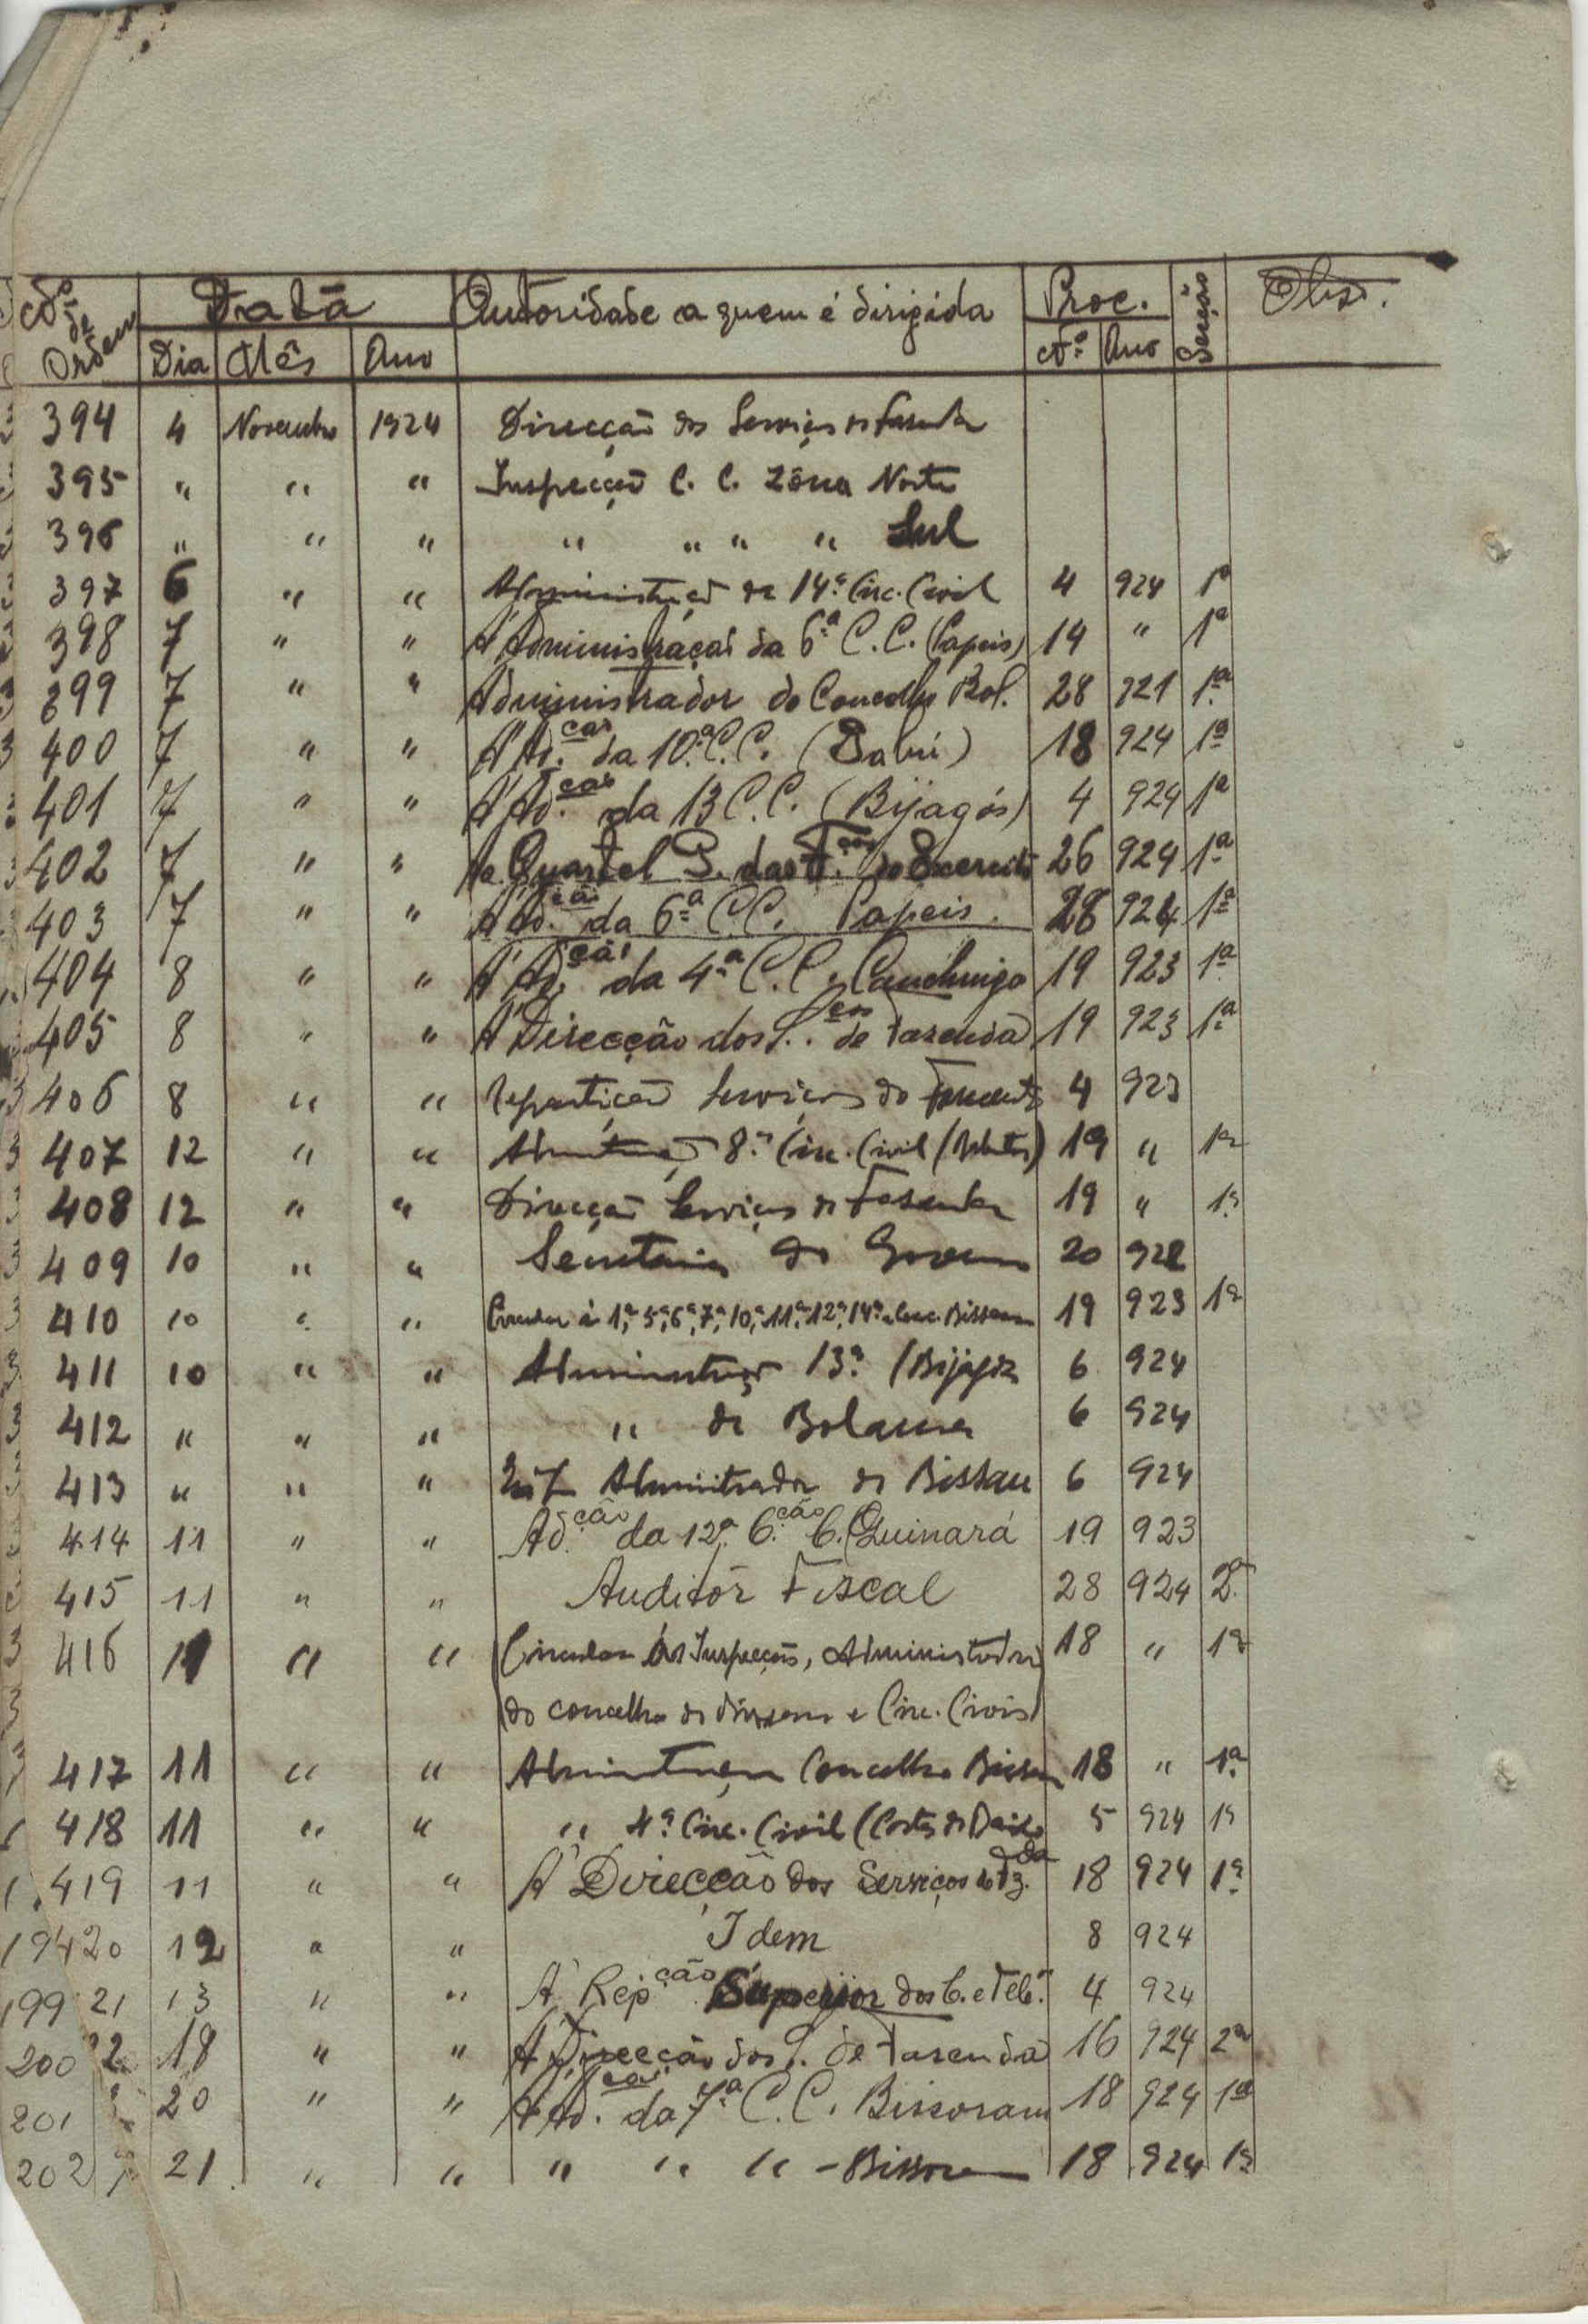 Nº de Ordem Data Autoridade a quem é dirigida Proc. Secção Obs.
Dia Mês Ano Nº Ano
394 4 Novembro 1924 Direcção dos Serviços de Fasenda
395 " " " Inspecção C. C. Zôna Norte
396 " " " " " " " Sul
397 6 " " Administração da 14ª Circ. Civil 4 924 1ª
398 7 " " Á Administração da 6ª C. C. (Papeis) 14 " 1ª
399 7 " " Administrador do Concelho Bol. 28 921 1ª
400 7 " " Á Ad.ção da 10ª C. C. 18 924 1ª
401 7 " " Á Ad.ção da 13 C. C. (Bijagós) 4 924 1ª
402 7 " " Ao Quartel G. das F.ças do Exercito 26 924 1ª
403 7 " " Á Ad.ção da 6ª C. C. Papeis. 28 924 1ª
404 8 " " Á Ad.ção da 4ª C. C. Canchungo 19 923 1ª
405 8 " " Á Direcção dos S.ços de Fasenda 19 923 1ª
406 8 " " Repartição Serviços do Fomento 4 923
407 12 " " 8ª Circ. Civil 19 " 1ª
408 12 " " Direcção Serviços de Fasenda 19 " 1ª
409 10 " " Secretaria do Governo 20 922
410 10 " " Circular á 1ª, 5ª, 6ª, 7ª, 10ª, 11ª, 12ª, 14ª e Conc. Bissau 19 923 1ª
411 10 " " Administração 13ª (Bijagós 6 924
412 " " " " de Bolama 6 924
413 " " " Administrador de Bissau 6 924
414 11 " " Ad.ção da 12ª C.ção C. (Quinará 19 923
415 11 " " Auditor Fiscal 28 924 2ª
416 11 " " (Circular Inspecções, Administrador 18 " 1ª
do concelho de Bissau e Circ. Civis)
417 11 " " Administração Concelho Bissau 18 " 1ª
418 11 " " " 4ª Circ. Civil (Costa de Baixo 5 924 1ª
419 11 " " Á Direcção dos Serviços de Fz.da 18 924 1ª
19420 12 " " Idem 8 924
199 21 13 " " Á Rep.ção Superior dos C. e Tel. 4 924
200 22 18 " " Á Direcção dos S. de Fasenda 16 924 2ª
201 20 " " Á Ad.ção da 7ª C. C. Bissoram 18 924 1ª
202 21 " " " " " - Bissoram 18 924 1ª